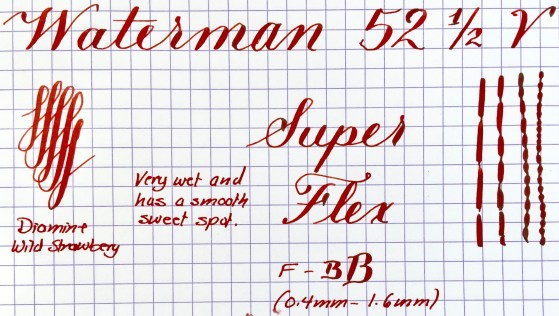 Waterman 52 1/2 V
Super
Flex
Very wet and
has a smooth
sweet spot.
Diamine
Wild Strawbery
F - BB
(0.4mm - 1.6mm)